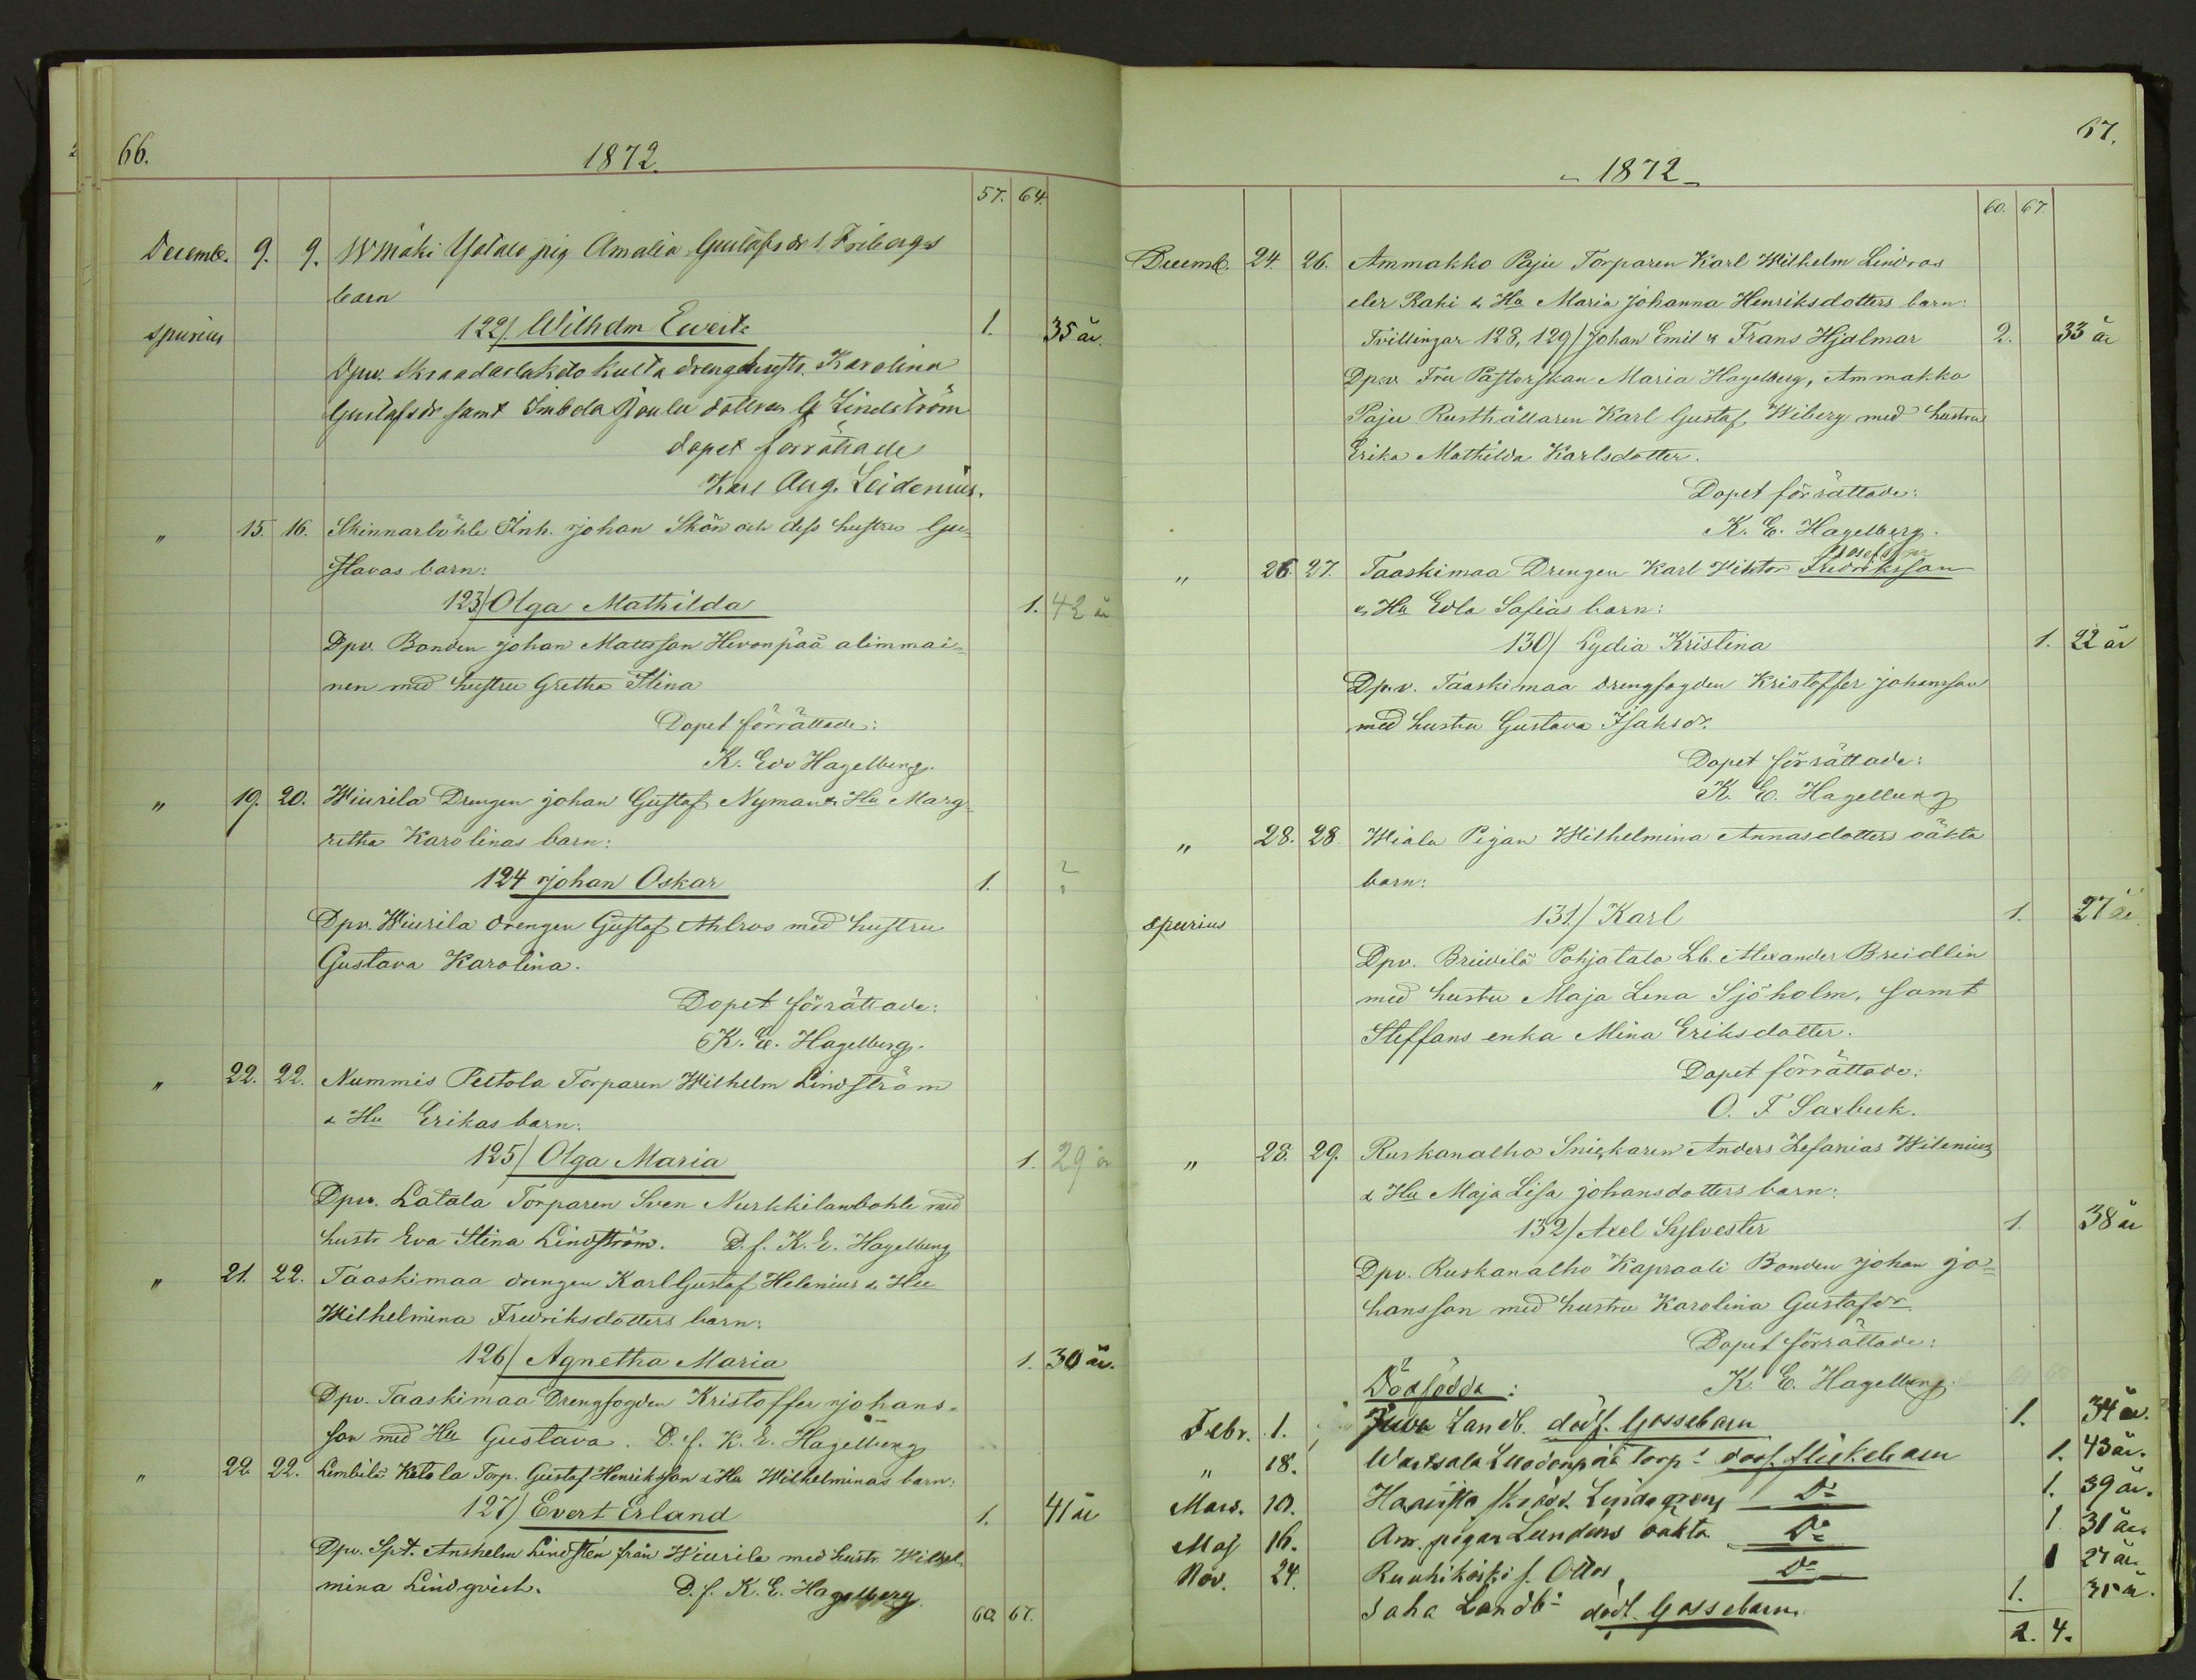 66.
1872.
57. 64.
Decemb. 9. 9. Wmäki Yotalo pig Amalia Gustafsdr. Fribergs
barn
spurius 122/. Wilhelm Evert 1. 35 år.
Dpv. kulta drenghustr. Karolina
Gustafsdr samt Joulu dottren G Lindström
dopet förrättade
Karl Aug. Leidenius.
" 15. 16. Skinnarböhle Inh. Johan Skön och dess hustru Gu=
stavas barn:
123/ Olga Mathilda 1. 42 år
Dpv. Bonden Johan Mattsson Hevonpää alimmai=
nen med hustru Gretha Stina
Dopet förrättade:
K. Edv Hagelberg.
" 19. 20. Wiurila Drengen Johan Gustaf Nyman & Hu Marg
retha Karolinas barn:
124 Johan Oskar 1. ?
Dpv. Wiurila drengen Gustaf Ahlros med hustru
Gustava Karolina.
Dopet förrättade:
K. E. Hagelberg.
" 22. 22. Nummis Peltola Torparen Wilhelm Lindström
& Hu Erikas barn:
125/ Olga Maria 1. 29 år
Dpv. Latala Torparen Sven med
hustr Eva Stina Lindström. D. f. K. E. Hagelberg
" 21. 22. Taaskimaa drengen Karl Gustaf Helenius & Hu
Wilhelmina Fredriksdotters barn:
126/ Agnetha Maria 1. 30 år.
Dpv. Taaskimaa Drengfogden Kristoffer Johans=
son med Hu Gustava. D. f. K. E. Hagelberg
" 22 22. Lembilä Ketola Torp. Gustaf Henriksson & Hu Wilhelminas barn:
127/ Evert Erland 1. 41 år
Dpv. Spt. Anshelm Lindstén från Wiurila med hustr. Wilhel
mina Lindqvist. D. f. K. E. Hagelberg.
60 67.
67.
- 1872 -
60. 67.
Decemb. 24. 26. Ammakko Paju Torparen Karl Wilhelm Lindros
eler Rahi & Hu Maria Johanna Henriksdotters barn:
Tvillingar 128, 129/ Johan Emil & Frans Hjalmar 2. 33 år
Dpv. Fru Pastorskan Maria Hagelberg, Ammakko
Paju Rusthållaren Karl Gustaf Wiberg med hustru
Erika Mathilda Karlsdotter.
Dopet förrättade:
K. E. Hagelberg.
" 26. 27. Taaskimaa Drengen Karl Viktor Fredriksson
& Hu Edla Sofias barn:
130/ Lydia Kristina 1. 22 år
Dpv. Taaskimaa drengfogden Kristoffer Johansson
med hustru Gustava Isaksdr.
Dopet förrättade:
K. E. Hagelberg
" 28. 28. Wiala Pigan Wilhelmina Annasdotters oäkta
barn:
spurius 131/ Karl 1. 27 år
Dpv. Breidilä Pohjatalo Lb. Alexander Breidlin
med hustru Maja Lena Sjöholm, samt
Steffans enka Mina Eriksdotter.
Dopet förrättade:
O. F Saxbeck.
" 28. 29. Ruskanalho Snickaren Anders Zefanias Wilenius
& Hu Maja Lisa Johansdotters barn:
132/ Axel Sylvester 1. 38 år
Dpv. Ruskanalho Kapraali Bonden Johan Jo=
hansson med hustru Karolina Gustafsdr.
Dopet förrättade:
K. E. Hagelberg.
Dödfödda:
Febr. 1. Juva Landb. dödf. Gossebarn 1. 34 år.
" 18. torp: dödf. flickebarn 1. 43 år.
Mars. 10. Lindegrens Do 1. 39 år.
Maj 16. Am. pigan Lundens oäkta Do 1 31 år.
Nov. 24. Ruuhikoski s. Ottos Do 1 27 år.
Saha Landb: dödf. Gossebarn. 1. 35 år.
2. 4.